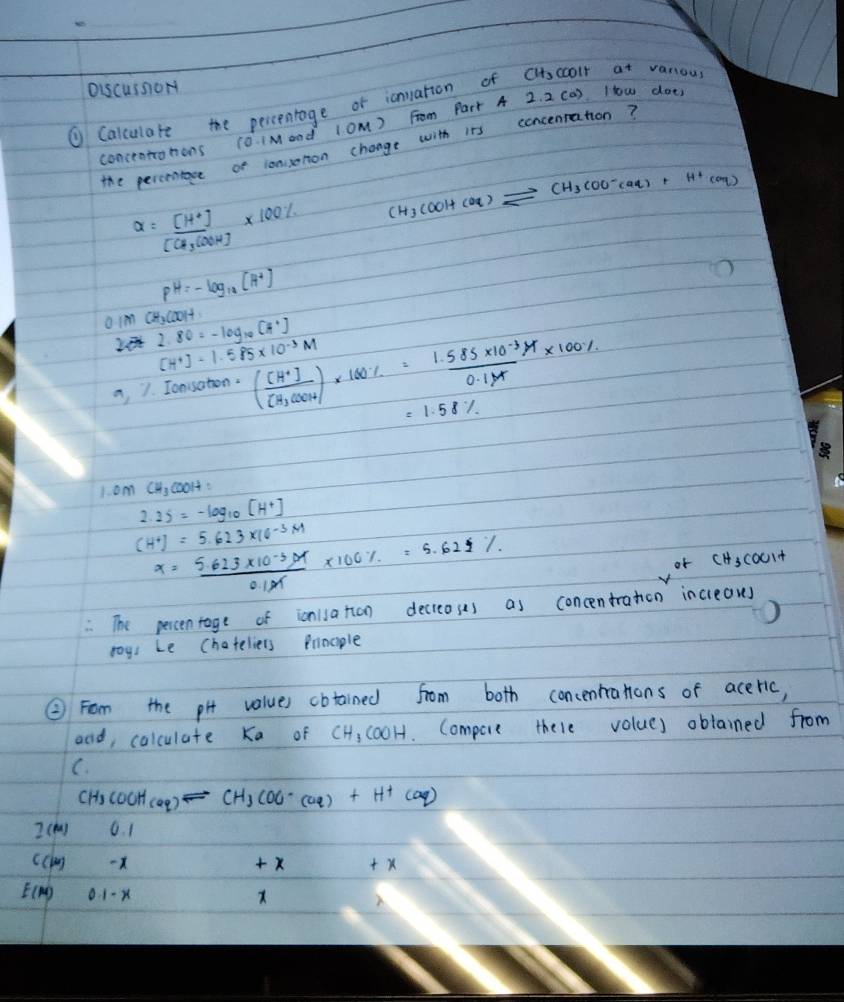 DISCUSSION
① Calculate the percentage of ionisation of CH₃COOH at various
concentrations (0.1M and 1.0M) From Part A 2.2 (a). How does
the percentage of ionisation change with its concentration ?
α = [H⁺] / [CH₃COOH] × 100%. CH₃COOH (aq) ⇌ CH₃COO⁻ (aq) + H⁺ (aq)
pH = -log₁₀ [H⁺]
0.1M CH₃COOH:
2.80 = -log₁₀ [H⁺]
[H⁺] = 1.585 × 10⁻³ M
a, %. Ionisation = ([H⁺] / [CH₃COOH]) × 100% = 1.585 × 10⁻³ M / 0.1M × 100%.
= 1.58 %.
1.0M CH₃COOH:
2.25 = -log₁₀ [H⁺]
[H⁺] = 5.623 × 10⁻³ M
α = 5.623 × 10⁻³ M / 0.1M × 100%. = 5.62 %.
∴ The percentage of ionisation decreases as concentration of CH₃COOH increases
says Le Chateliers Principle
② From the pH values obtained from both concentrations of acetic,
acid, calculate Ka of CH₃COOH. Compare these values obtained from
C.
CH₃COOH (aq) ⇌ CH₃COO⁻ (aq) + H⁺ (aq)
I (M) 0.1
C (M) -x +x +x
E (M) 0.1-x x x